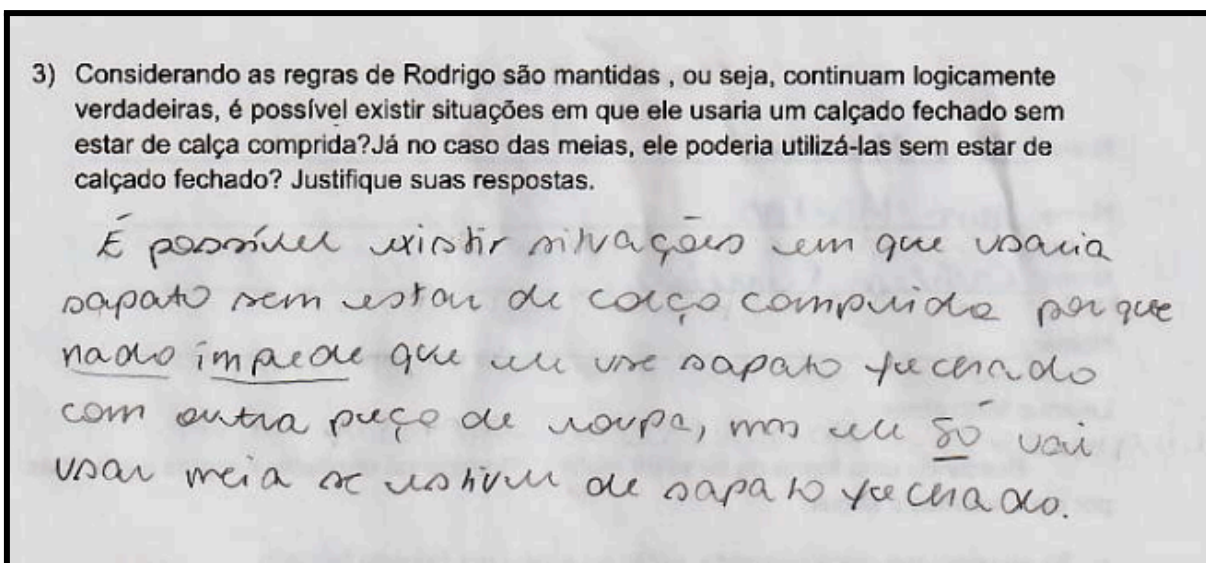 3) Considerando as regras de Rodrigo são mantidas , ou seja, continuam logicamente
verdadeiras, é possível existir situações em que ele usaria um calçado fechado sem
estar de calça comprida?Já no caso das meias, ele poderia utilizá-las sem estar de
calçado fechado? Justifique suas respostas.
É possível existir situações em que usaria
sapato sem estar de calça comprida porque
nada impede que ele use sapato fechado
com outra peça de roupa, mas ele só vai
usar meia se estiver de sapato fechado.